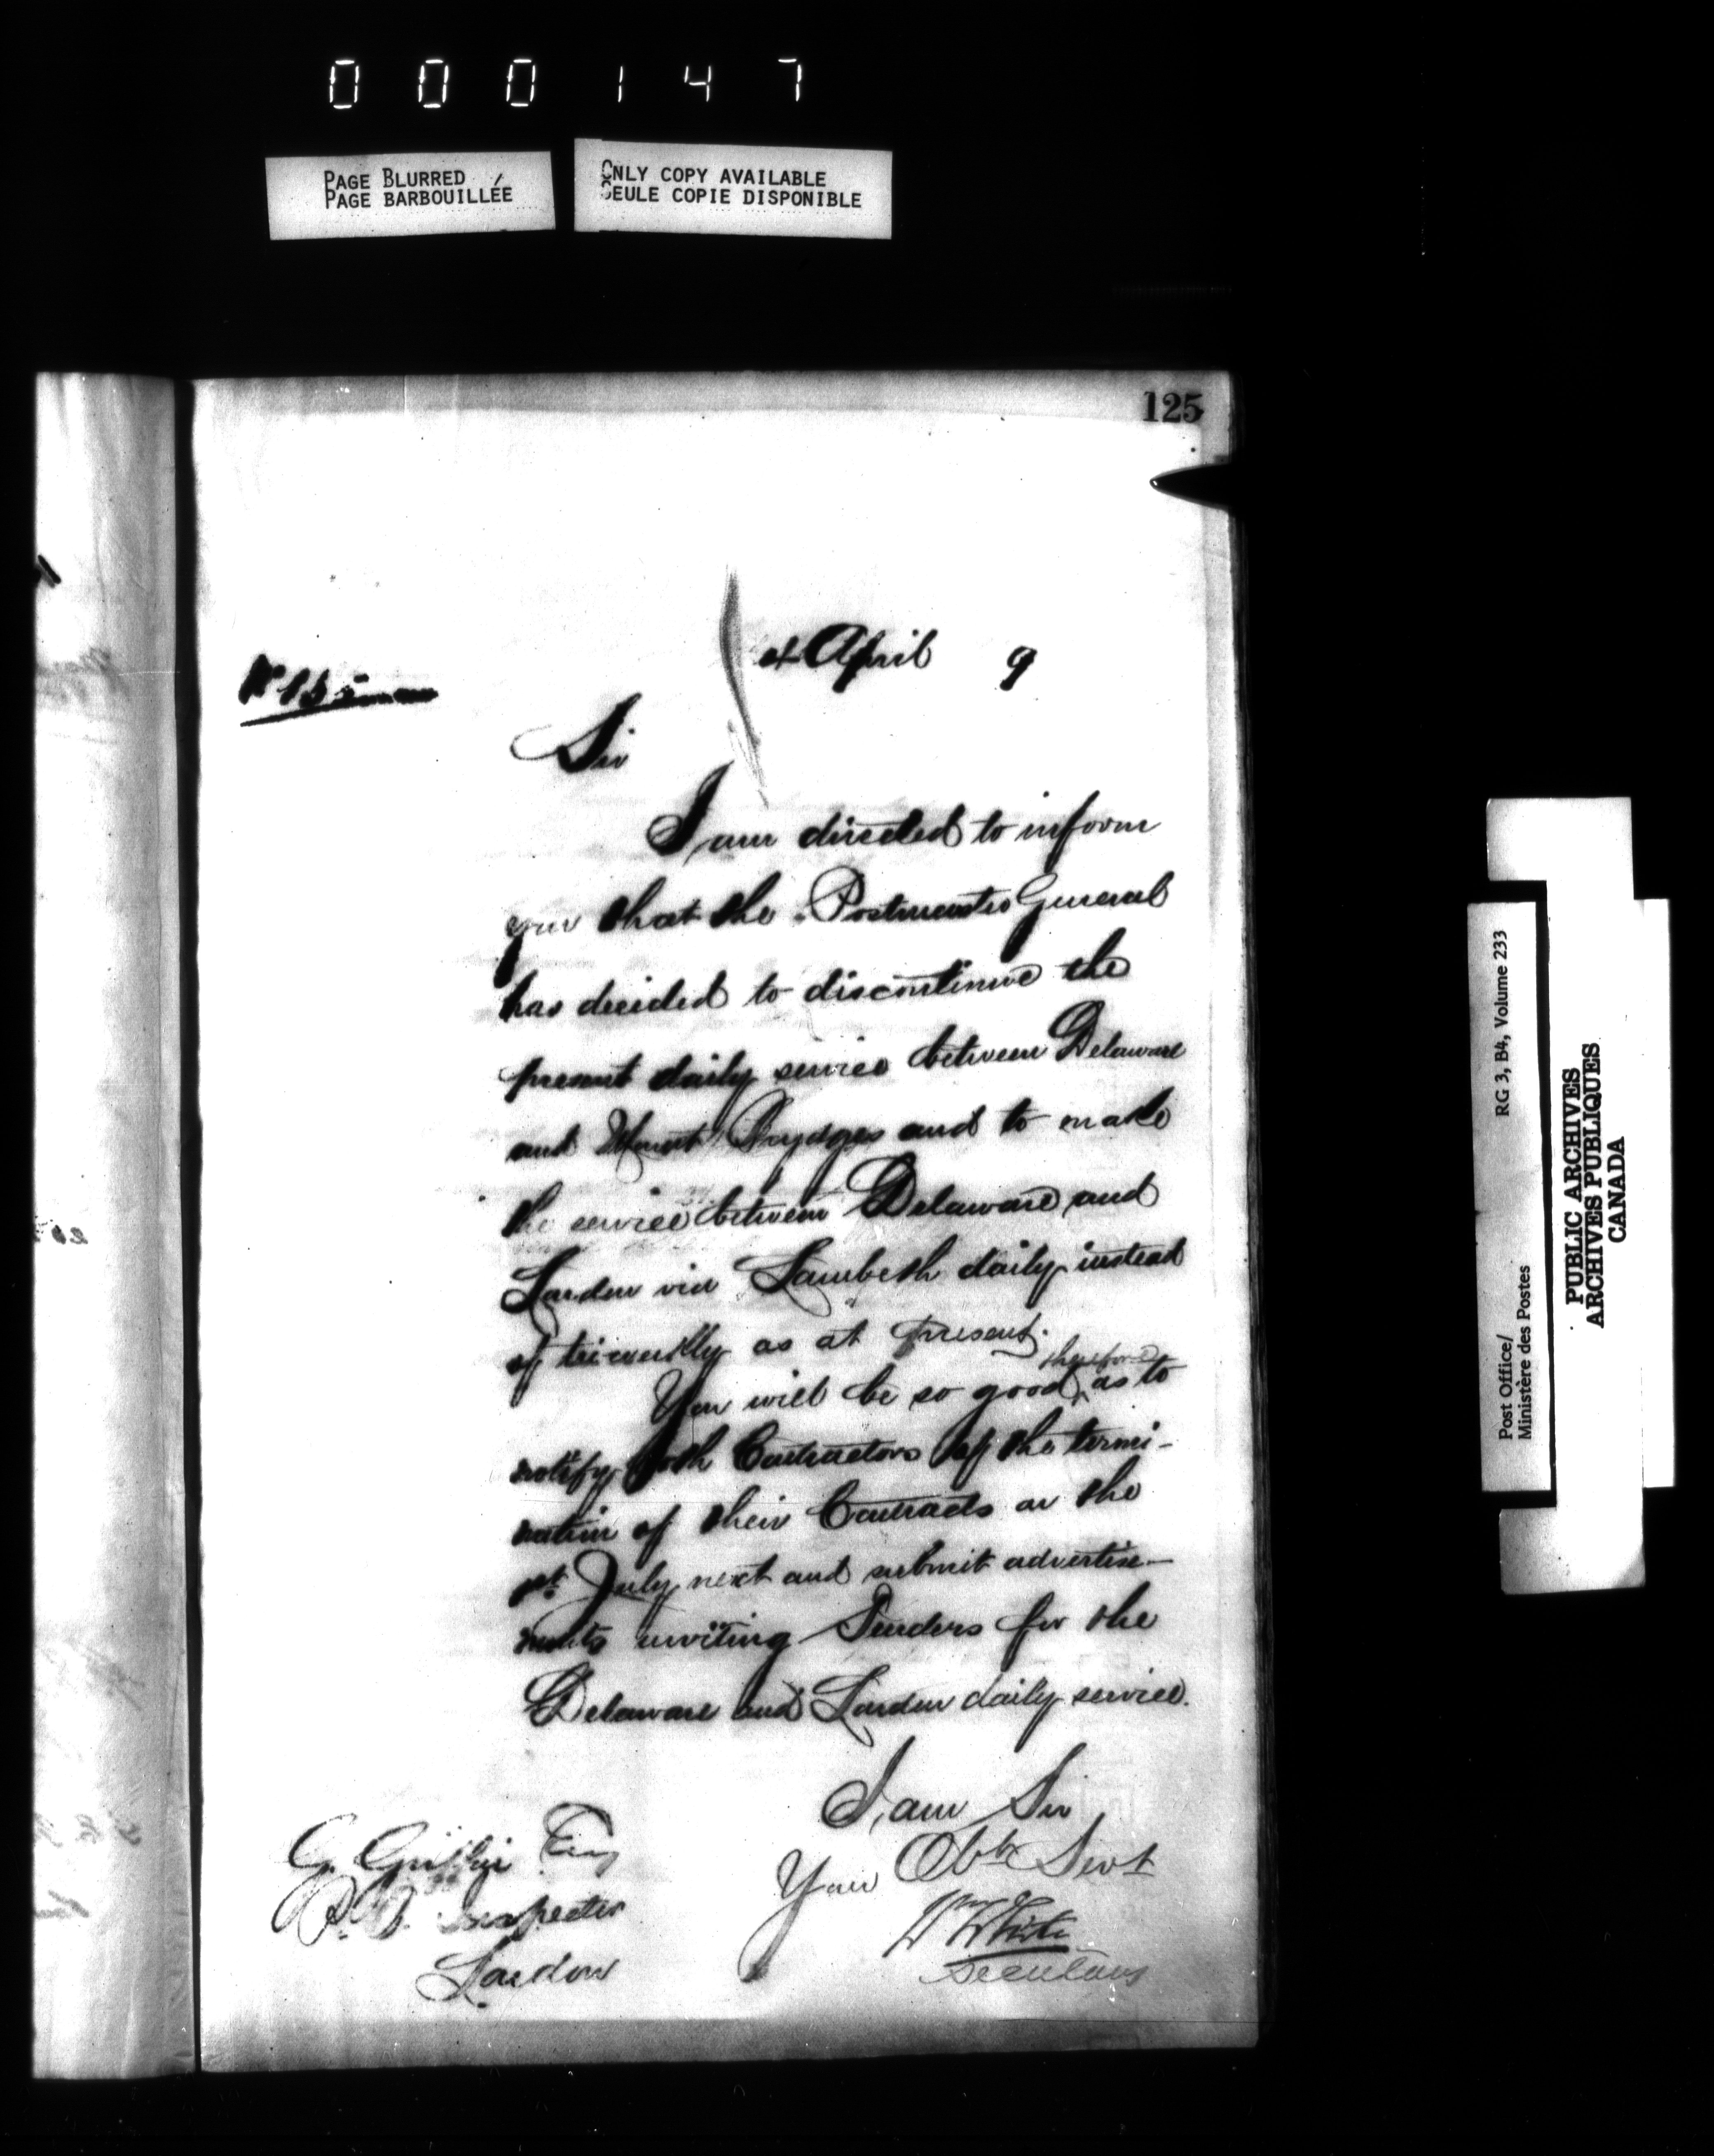 000147
PAGE BLURRED
PAGE BARBOUILLÉE
ONLY COPY AVAILABLE
SEULE COPIE DISPONIBLE
125
4 April 9
Sir
I am directed to inform
you that the Postmaster General
has decided to discontinue the
present daily service between Delaware
and Mount Brydges and to make
the service between Delaware and
London via Lambeth daily instead
of triweekly as at present.
You will be so good therefore as to
notify both Contractors of the termi-
nation of their Contracts on the
1st July next and submit advertise-
ments inviting Tenders for the
Delaware and London daily service.
I am Sir
Your Obt Servt
Wm White
Secretary
G. Griffin Esq
P.O. Inspector
London
RG 3, B4, Volume 233
Post Office/
Ministère des Postes
PUBLIC ARCHIVES
ARCHIVES PUBLIQUES
CANADA